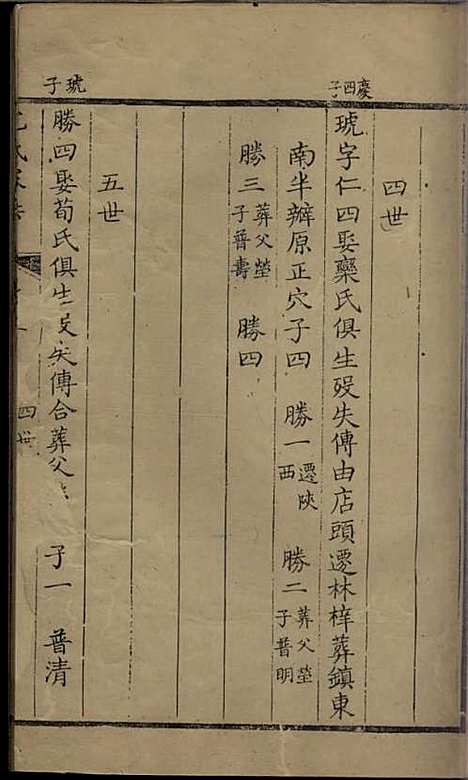 慶四子
四世
琥字仁四娶欒氏俱生歿失傳由店頭遷林梓葬鎮東
南半辦原正穴子四 勝一 遷陝西 勝二 葬父塋子普明
勝三 葬父塋子普壽 勝四
五世
琥子
勝四娶荀氏俱生失傳合葬父 子一 普清
四世